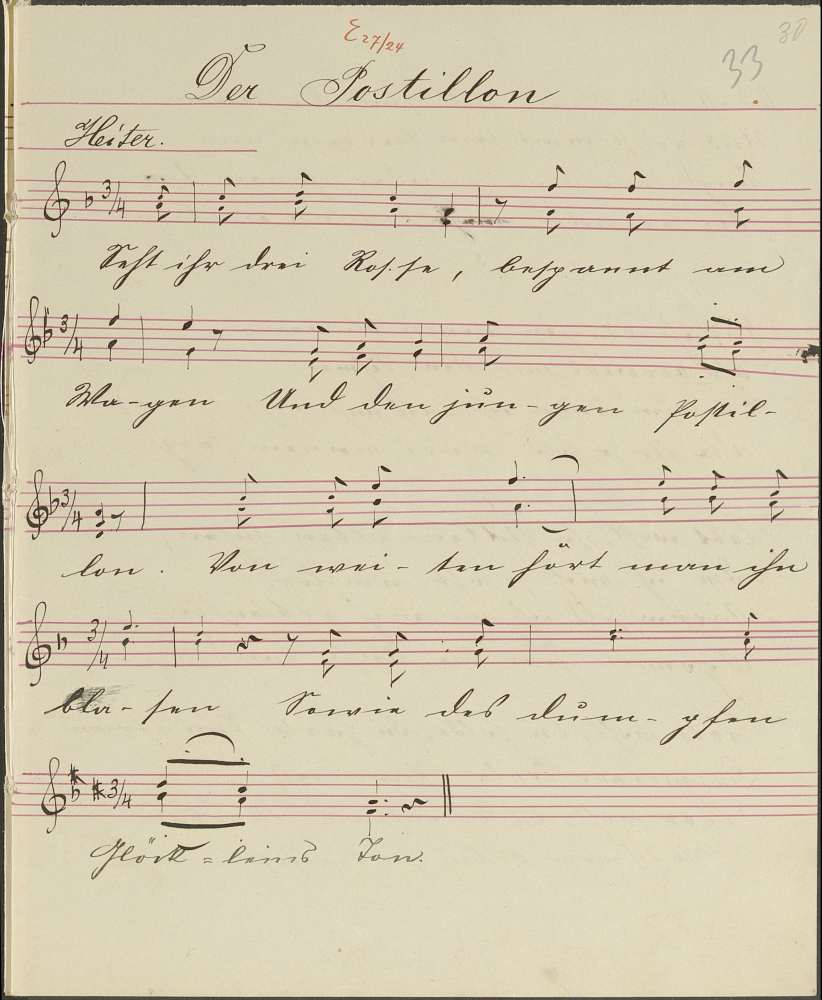 E 27/24
30
33
Der Postillon
Heiter.
3/4
Seht ihr drei Ros-se, bespannt am
3/4
Wa-gen Und den jun-gen Postil-
3/4
lon. Von wei-ten hört man ihn
3/4
bla-sen Sowie des dum-pfen
3/4
Glöck=leins Ton.